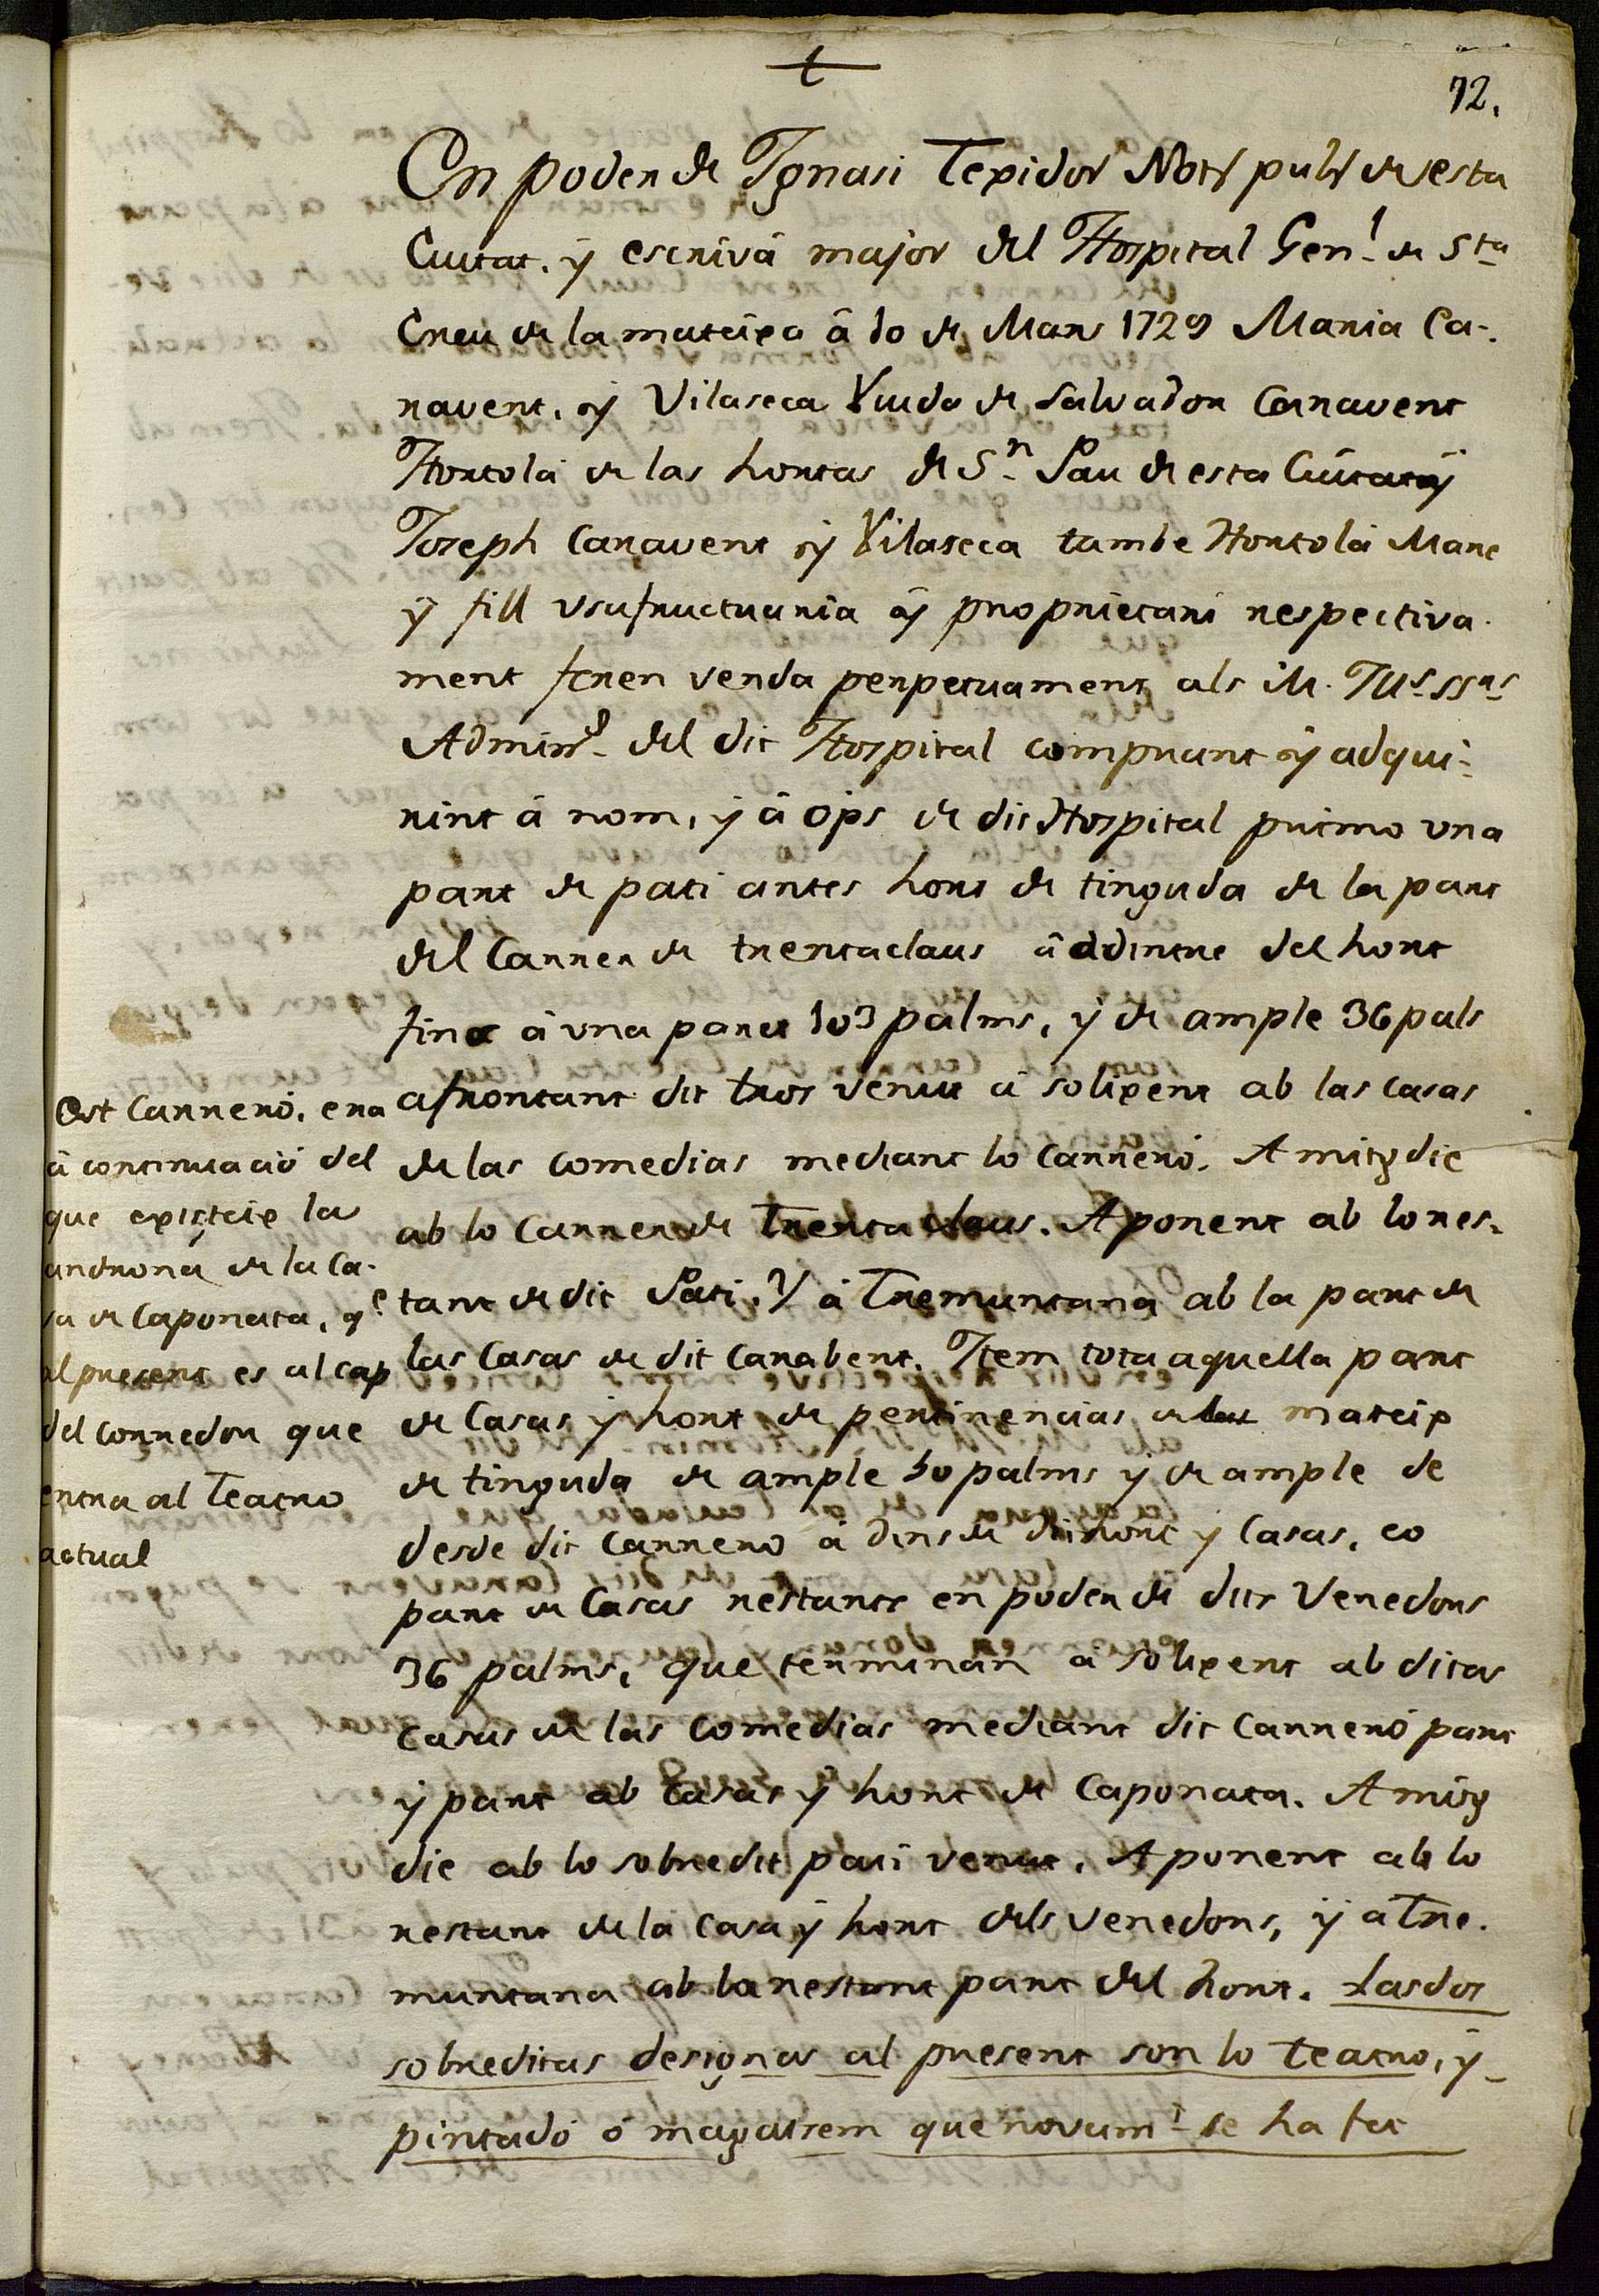 t
12.
En poder de Ignasi Texidor Notr publ de esta
Ciutat, y escrivá major del Hospital Gen.l de Sta
Creu de la mateixa â 10 de Mars 1729 Maria Ca-
navent, y Vilaseca Viuda de Salvador Canavent
Hortolá de las hortas de Sn Pau de esta Ciutat y
Joseph Canavent y Vilaseca tambe Hortolá Mare
y fill usufructuaria y proprietari respectiva-
ment feren venda perpetuament als M. Illes ssrs
Adminrs del dit Hospital comprant y adqui-
rint â nom, y â ops de dit Hospital primo una
part de pati antes hort de tinguda de la part
del Carrer de trentaclaus â ddintre del hort
fins â una paret 103 palms, y de ample 36 pals
afrontant dit tros venut â solixent ab las casas
de las comedias mediant lo Carreró. A mitgdie
ab lo Carrer de Trentaclaus. A ponent ab lo res-
tant de dit Pati, Y â Tremuntana ab la part de
las Casas de dit Canabent. Item tota aquella part
de Casas y hort de pertinencias de las mateix
de tinguda de ample 50 palms y de ample de
desde dit Carreró â dins de dit hort y Casas, co
part de Casas restants en poder de dits Venedors
36 palms, que terminan â solixent ab ditas
casas de las Comedias mediant dit Carreró part
y part ab casas y hort de Caponata. A mitg
die ab lo sobredit pati venut. A ponent ab lo
restant de la Casa y hort dels venedors, y â Tre-
muntana ab la restant part del hort. Las dos
sobreditas designas al present son lo teatro, y
pintadó ó magatsem que novamt se ha fet
Est Carreró, era
â continuació del
que existeix la
androna de la Ca-
sa de Caponata, qe
al present es al cap
del Corredor que
entra al Teatro
actual